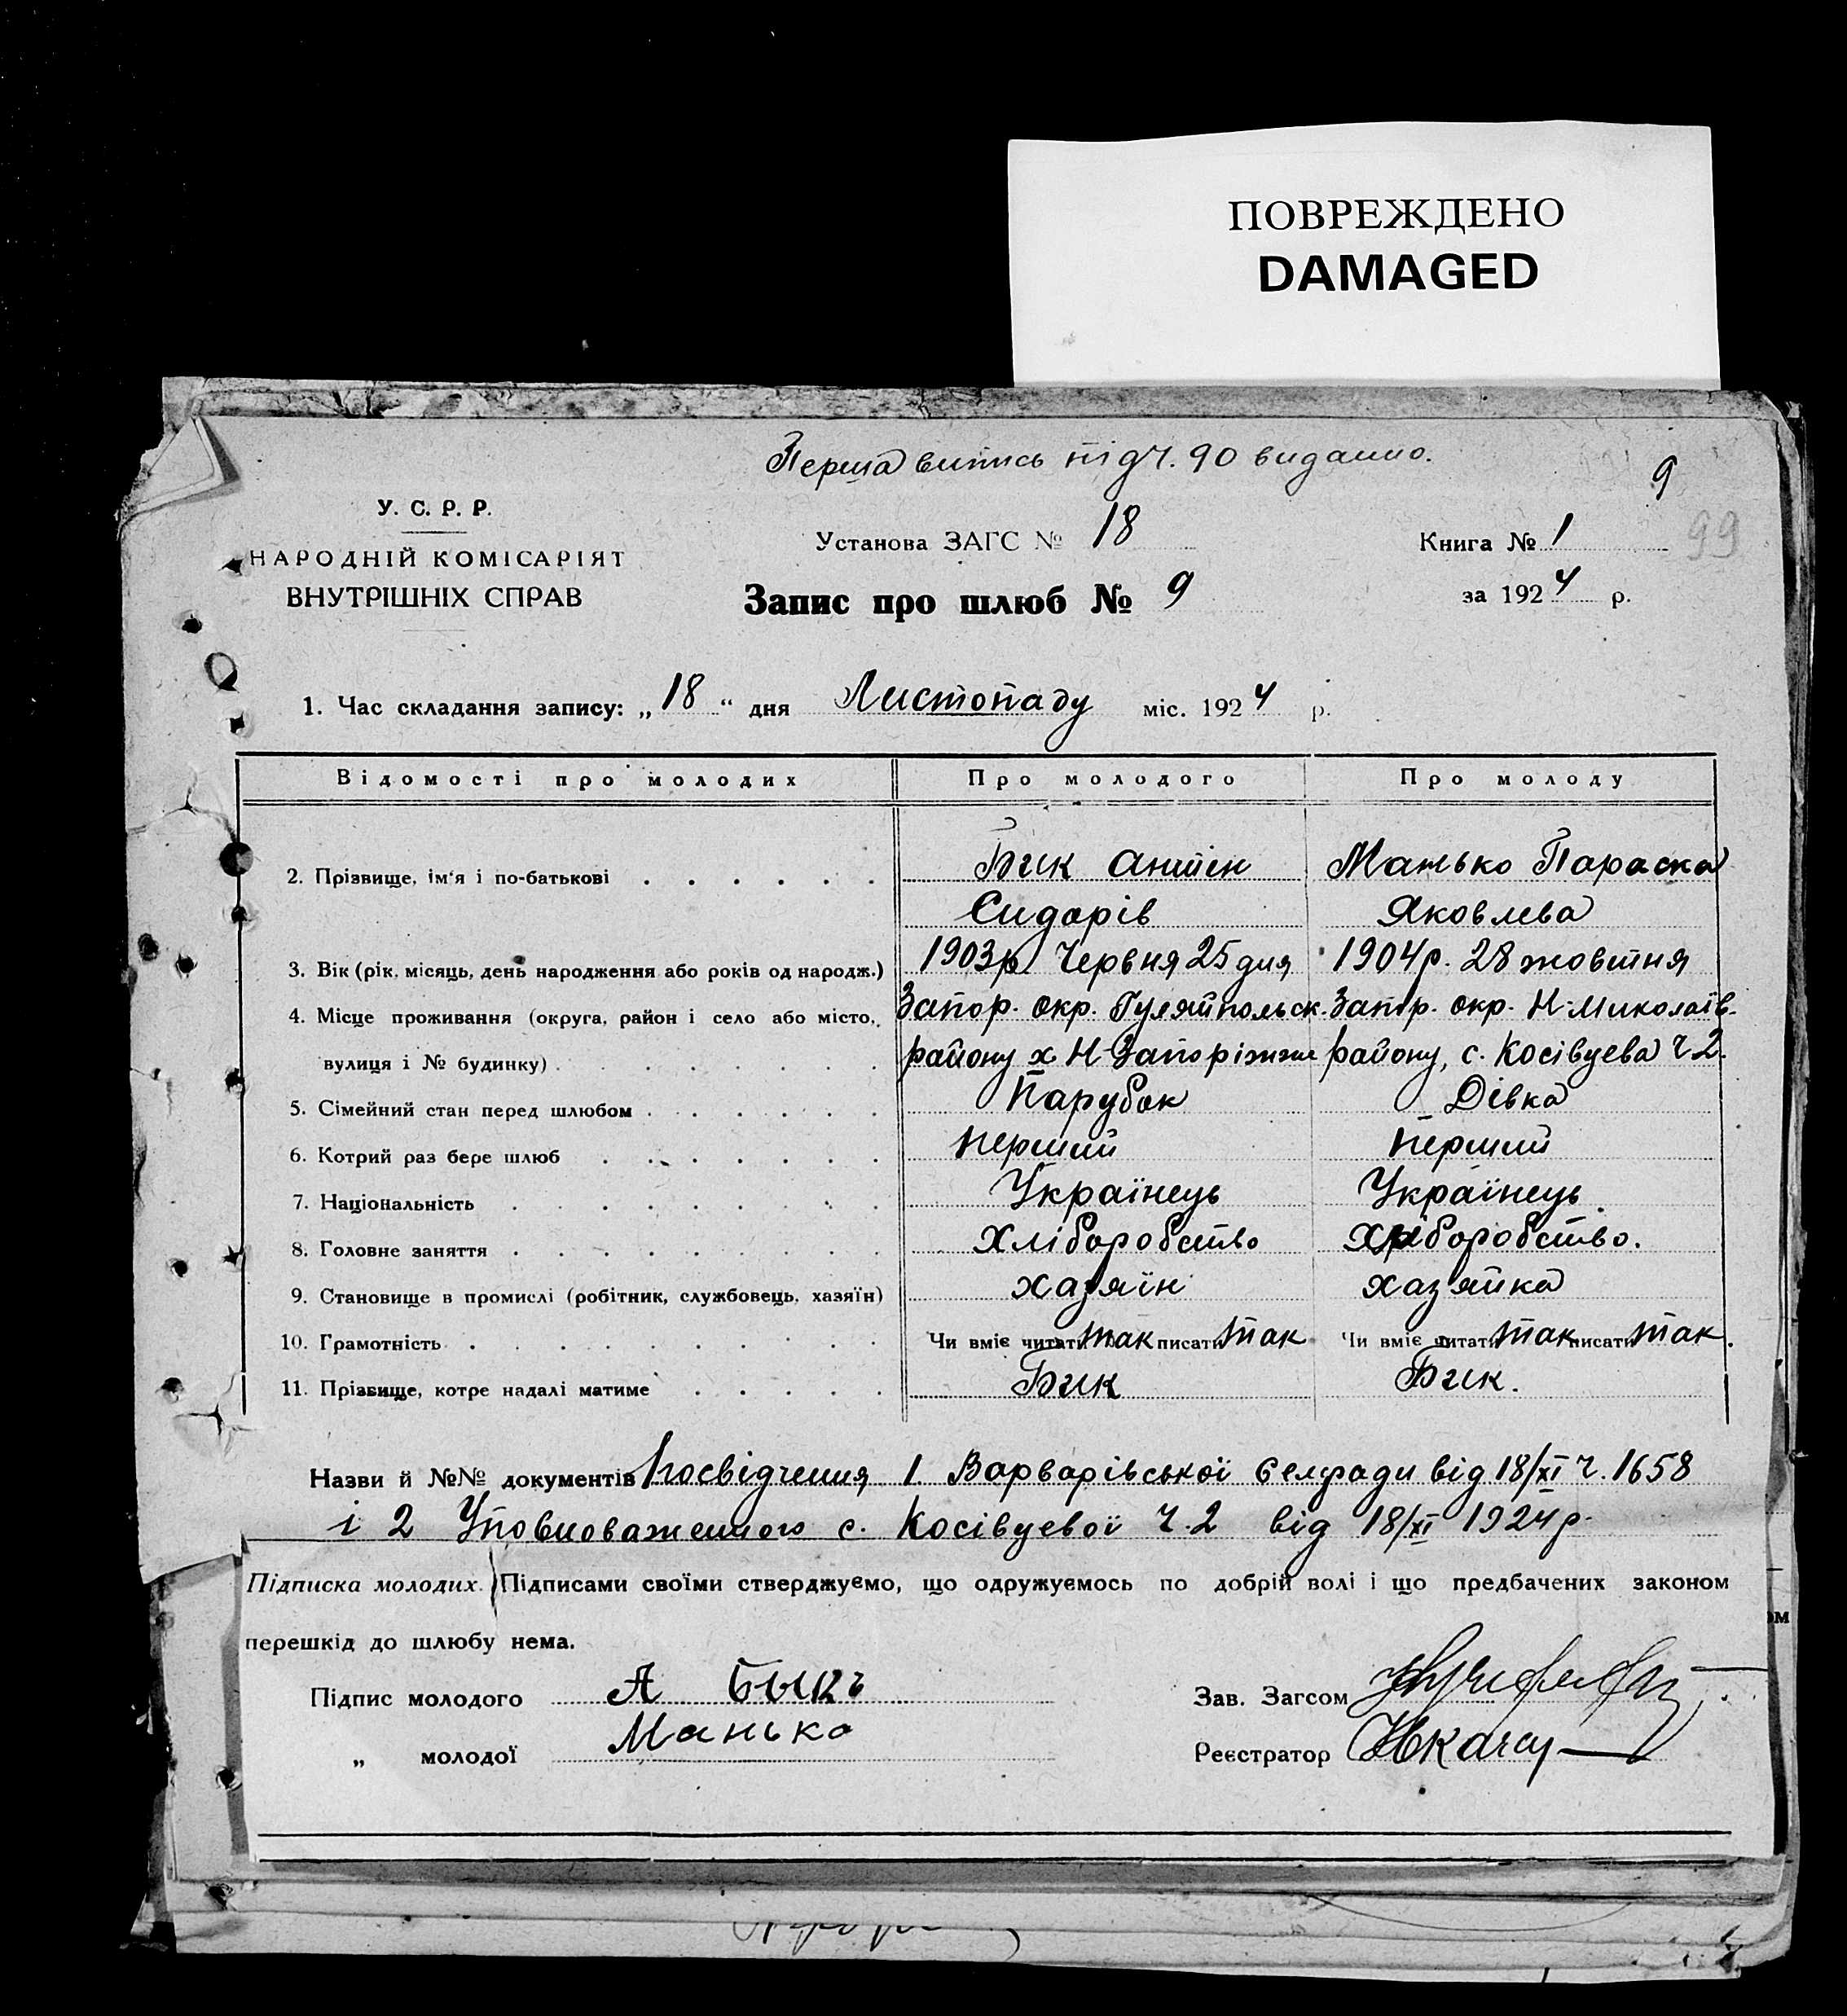 ПОВРЕЖДЕНО
DAMAGED
Перша випись під ч. 90 видано.
9
99
У. С. Р. Р.
НАРОДНІЙ КОМІСАРІЯТ
ВНУТРІШНІХ СПРАВ
Установа ЗАГС № 18
Книга № 1
Запис про шлюб № 9
за 1924 р.
1. Час складання запису: „18“ дня Листопаду міс. 1924 р.
Відомості про молодих Про молодого Про молоду
2. Прізвище, ім'я і по-батькові Бик Антін Манько Параска
Сидорів Яковлева
3. Вік (рік, місяць, день народження або років од народж.) 1903р. Червня 25 дня 1904р. 28 жовтня
4. Місце проживання (округа, район і село або місто, Запор. окр. Гуляйпольск. Запор. окр. Н-Миколаїв.
вулиця і № будинку) району х Н-Запоріжжє району, с. Косівцева ч 2.
5. Сімейний стан перед шлюбом Парубок Дівка
6. Котрий раз бере шлюб перший перший
7. Національність Українець Українець
8. Головне заняття Хліборобство Хліборобство.
9. Становище в промислі (робітник, службовець, хазяїн) хазяїн хазяйка
10. Грамотність Чи вміє читати так писати так Чи вміє читати так писати так.
11. Прізвище, котре надалі матиме Бик Бик.
Назви й №№ документів Посвідчення 1 Варварівської Селради від 18/XI ч. 1658
і 2 Уповноваженного с. Косівцевої ч. 2 від 18/XI 1924р.
Підписка молодих. Підписами своїми стверджуємо, що одружуємось по добрій волі і що предбачених законом
ом
перешкід до шлюбу нема.
Підпис молодого А Быкъ
Зав. Загсом
„ молодої Манько
Реєстратор